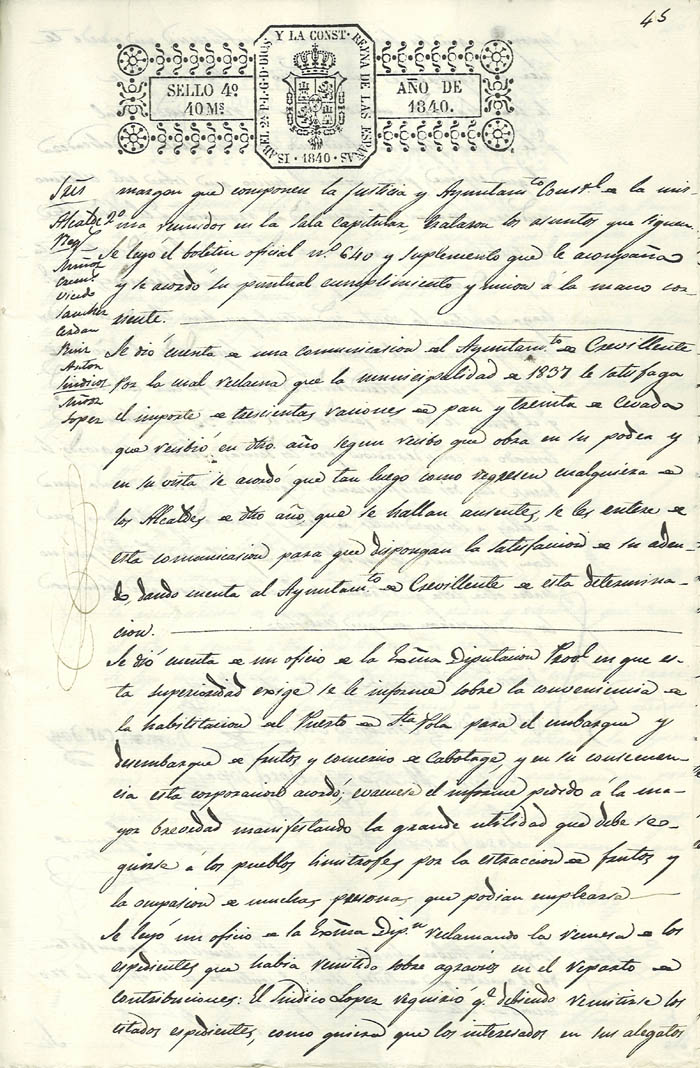 45
ISABEL 2ª P.L.G.D.DIOS Y LA CONST. REYNA DE LAS ESPAÑAS · 1840 ·
SELLO 4º
40 Ms
AÑO DE
1840.
Sres
Alcalde 2º
Reg.
Muñoz
Sanchez
Cerdan
Ruiz
Anton
Sindicos
Lopez
margen que componen la Justicia y Ayuntam.to Const.l de la mis-
ma reunidos en la Sala Capitular, trataron los asuntos que siguen.
Se leyó el boletin oficial nº 640 y suplemento que le acompaña
y se acordó su puntual cumplimiento y union á la mano cor-
riente.
Se dió cuenta de una comunicacion del Ayuntam.to de Crevillente
por la cual reclama que la municipalidad de 1837 le satisfaga
el importe de trescientas raciones de pan y treinta de Cevada
que recibió en dho año segun recibo que obra en su poder y
en su vista se acordó que tan luego como regresen cualquiera de
los Alcaldes de dho año, que se hallan ausentes, se les entere de
esta comunicacion para que dispongan la satisfacion de su aden-
do, dando cuenta al Ayuntam.to de Crevillente de esta determina-
cion.
Se dió cuenta de un oficio de la Exma Diputacion Prov.l en que es-
ta superioridad exige se le informe sobre la conveniencia de
la habilitacion del Puerto de Sta Pola para el embarque y
desembarque de frutos y comercio de Cabotage, y en su consecuen-
cia esta corporacion acordó, evacuese el informe pedido á la ma-
yor brevedad manifestando la grande utilidad que debe se-
guirse á los pueblos limitrofes por la estraccion de frutos y
la ocupasion de muchas personas que podian emplearse
Se leyó un oficio de la Exma Dip.n reclamando la remesa de los
espedientes que habia remitido sobre agravios en el reparto de
contribuciones: El Sindico Lopez requirió q.e debiendo remitirse los
citados espedientes, como quiera que los interesados en sus alegatos